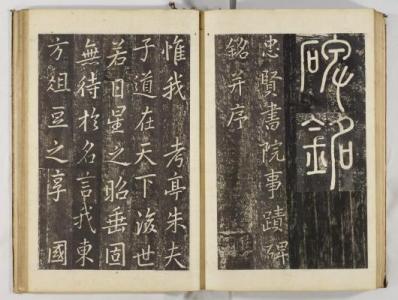 碑銘
忠賢書院事蹟碑
銘并序
惟我 考亭朱夫
子道在天下後世
若日星之昭垂固
無待於名言我東
方俎豆之享 國